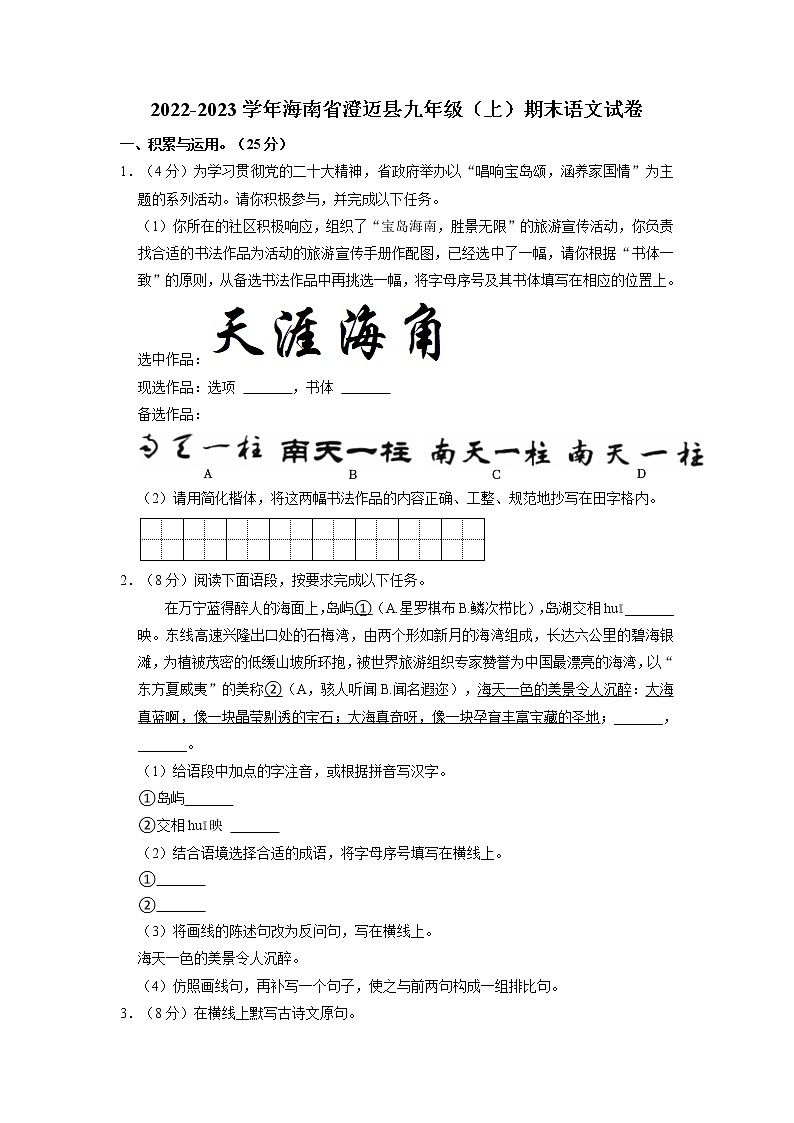 2022-2023 学年海南省澄迈县九年级（上）期末语文试卷
一、积累与运用。（25 分）
1．（4 分）为学习贯彻党的二十大精神，省政府举办以“唱响宝岛颂，涵养家国情”为主
题的系列活动。请你积极参与，并完成以下任务。
（1）你所在的社区积极响应，组织了“宝岛海南，胜景无限”的旅游宣传活动，你负责
找合适的书法作品为活动的旅游宣传手册作配图，已经选中了一幅，请你根据“书体一
致”的原则，从备选书法作品中再挑选一幅，将字母序号及其书体填写在相应的位置上。
选中作品：天涯海角
现选作品：选项 ______，书体 ______
备选作品：
南天一柱 南天一柱 南天一柱 南天一柱
A B C D
（2）请用简化楷体，将这两幅书法作品的内容正确、工整、规范地抄写在田字格内。
2．（8 分）阅读下面语段，按要求完成以下任务。
在万宁蓝得醉人的海面上，岛屿①（A.星罗棋布 B.鳞次栉比），岛湖交相 huī______
映。东线高速兴隆出口处的石梅湾，由两个形如新月的海湾组成，长达六公里的碧海银
滩，为植被茂密的低缓山坡所环抱，被世界旅游组织专家赞誉为中国最漂亮的海湾，以“
东方夏威夷”的美称②（A，骇人听闻 B.闻名遐迩），海天一色的美景令人沉醉：大海
真蓝啊，像一块晶莹剔透的宝石；大海真奇呀，像一块孕育丰富宝藏的圣地；______，
______。
（1）给语段中加点的字注音，或根据拼音写汉字。
①岛屿______
②交相 huī映 ______
（2）结合语境选择合适的成语，将字母序号填写在横线上。
①______
②______
（3）将画线的陈述句改为反问句，写在横线上。
海天一色的美景令人沉醉。
（4）仿照画线句，再补写一个句子，使之与前两句构成一组排比句。
3．（8 分）在横线上默写古诗文原句。